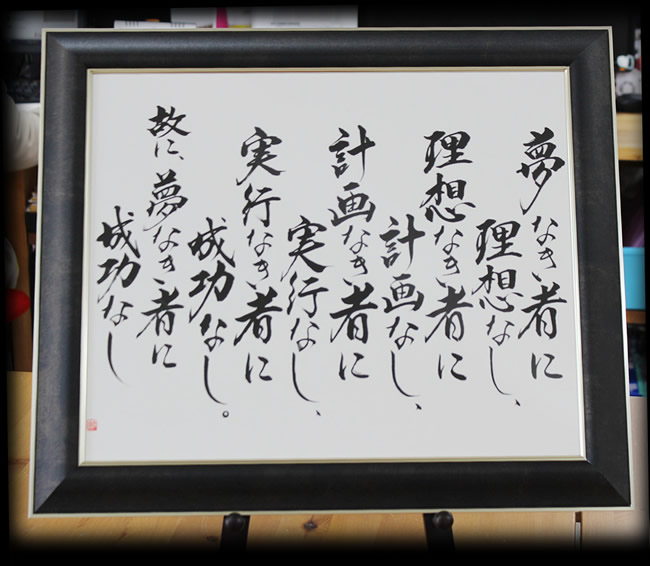 夢なき者に
理想なし、
理想なき者に
計画なし、
計画なき者に
実行なし、
実行なき者に
成功なし。
故に、夢なき者に
成功なし